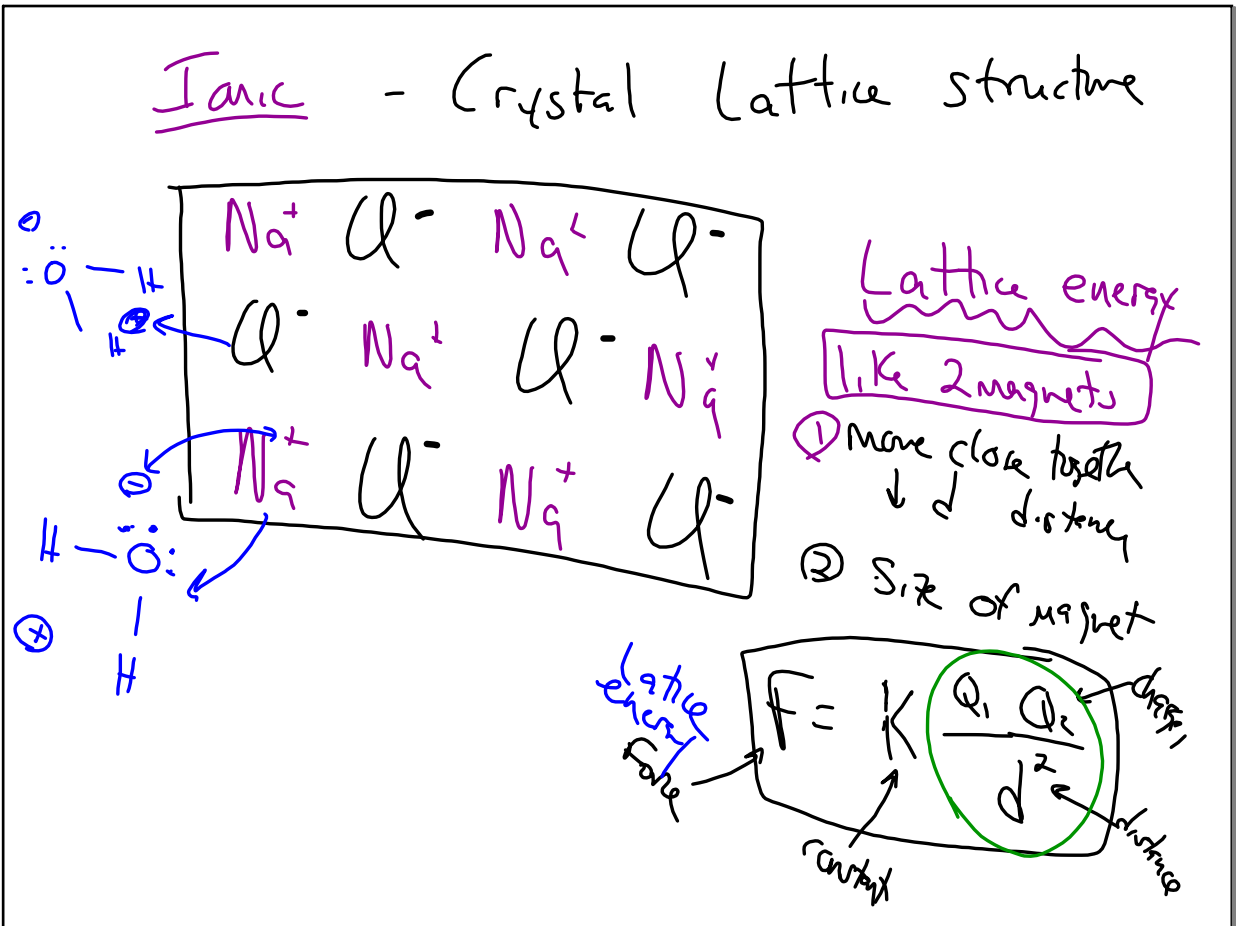 Ionic - Crystal Lattice structure
Na+ Cl- Na+ Cl-
Cl- Na+ Cl- Na+
Na+ Cl- Na+ Cl-
⊖
:Ö - H
H ⊕
⊖
H - Ö:
⊕
H
Lattice energy
like 2 magnets
① move close together
↓ d distance
② Size of magnet
Lattice
energy
Force
F = K Q₁ Q₂ / d²
charge
constant
distance